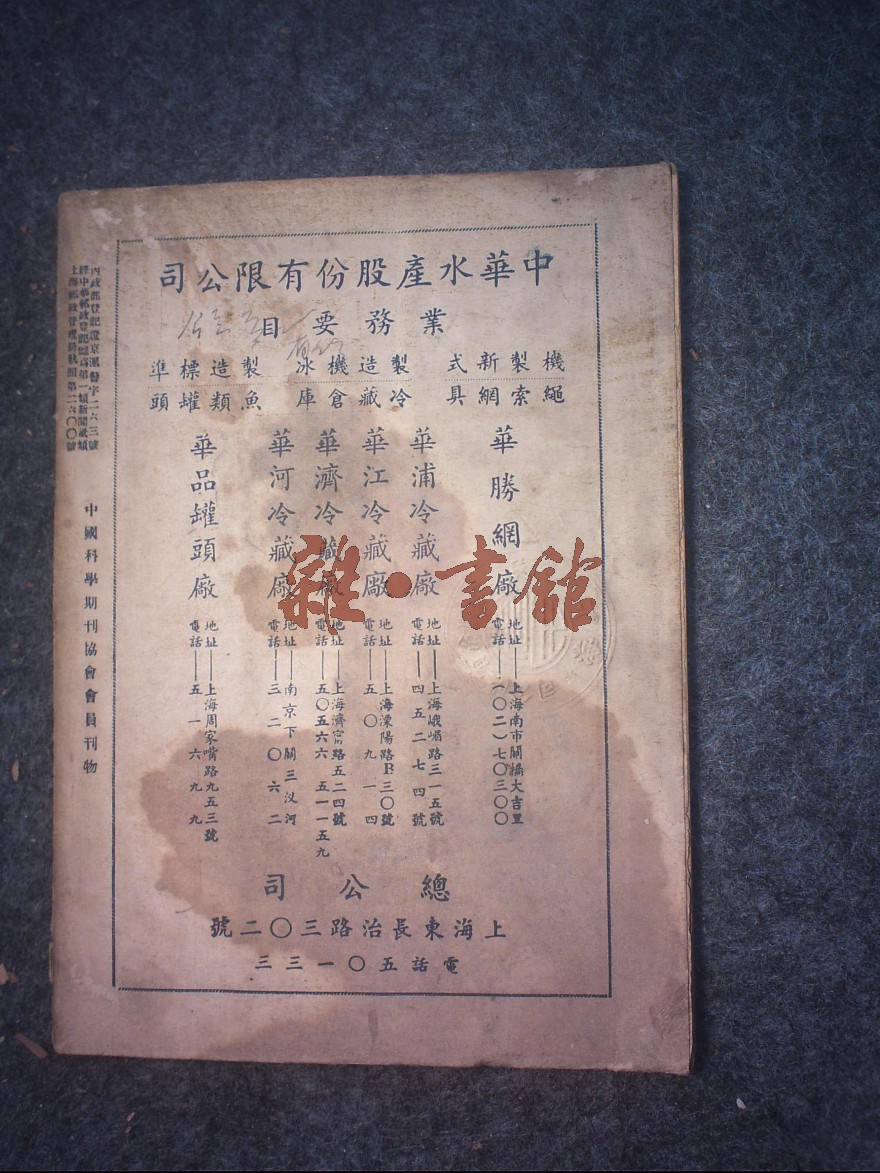 中華水產股份有限公司
業務要目
機製新式
繩索網具
製造機冰
冷藏倉庫
製造標準
魚類罐頭
華勝網廠
地址——上海南市關橋大吉里
電話——(〇二)七〇三〇〇
華浦冷藏廠
地址——上海峨嵋路三一五號
電話——四五二七四號
華江冷藏廠
地址——上海溧陽路B三〇號
電話——五〇九一四
華濟冷藏廠
地址——上海濟寧路五二四號
電話——五〇五六六 五一一五九
華河冷藏廠
地址——南京下關三汊河
電話——三二〇六二
華品罐頭廠
地址——上海周家嘴路九五三號
電話——五一六九九
總公司
上海東長治路三〇二號
電話五〇一三三
內政部登記證京滬警字二六三號
經中華郵政登記認為第一類新聞紙類
上海郵政管理局執照第二六〇〇號
中國科學期刊協會會員刊物
雜·書館